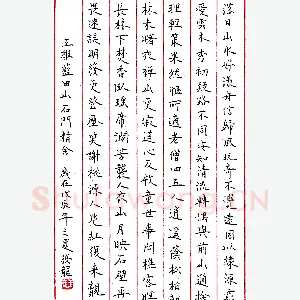 落日山水好漾舟信歸風玩奇不覺遠因以緣源
愛雲木秀初疑路不同安知清流轉偶與前山通
理輕策果然愜所適老僧四五人逍遥蔭松柏
林未曙夜禪山更寂道心及牧童世事問樵客
長林下焚香臥瑶席澗芳襲人衣山月映石壁再
畏迷誤明發更登歷笑謝桃源人花紅復來覿
王維藍田山石門精舍 歲在戊辰年之夏